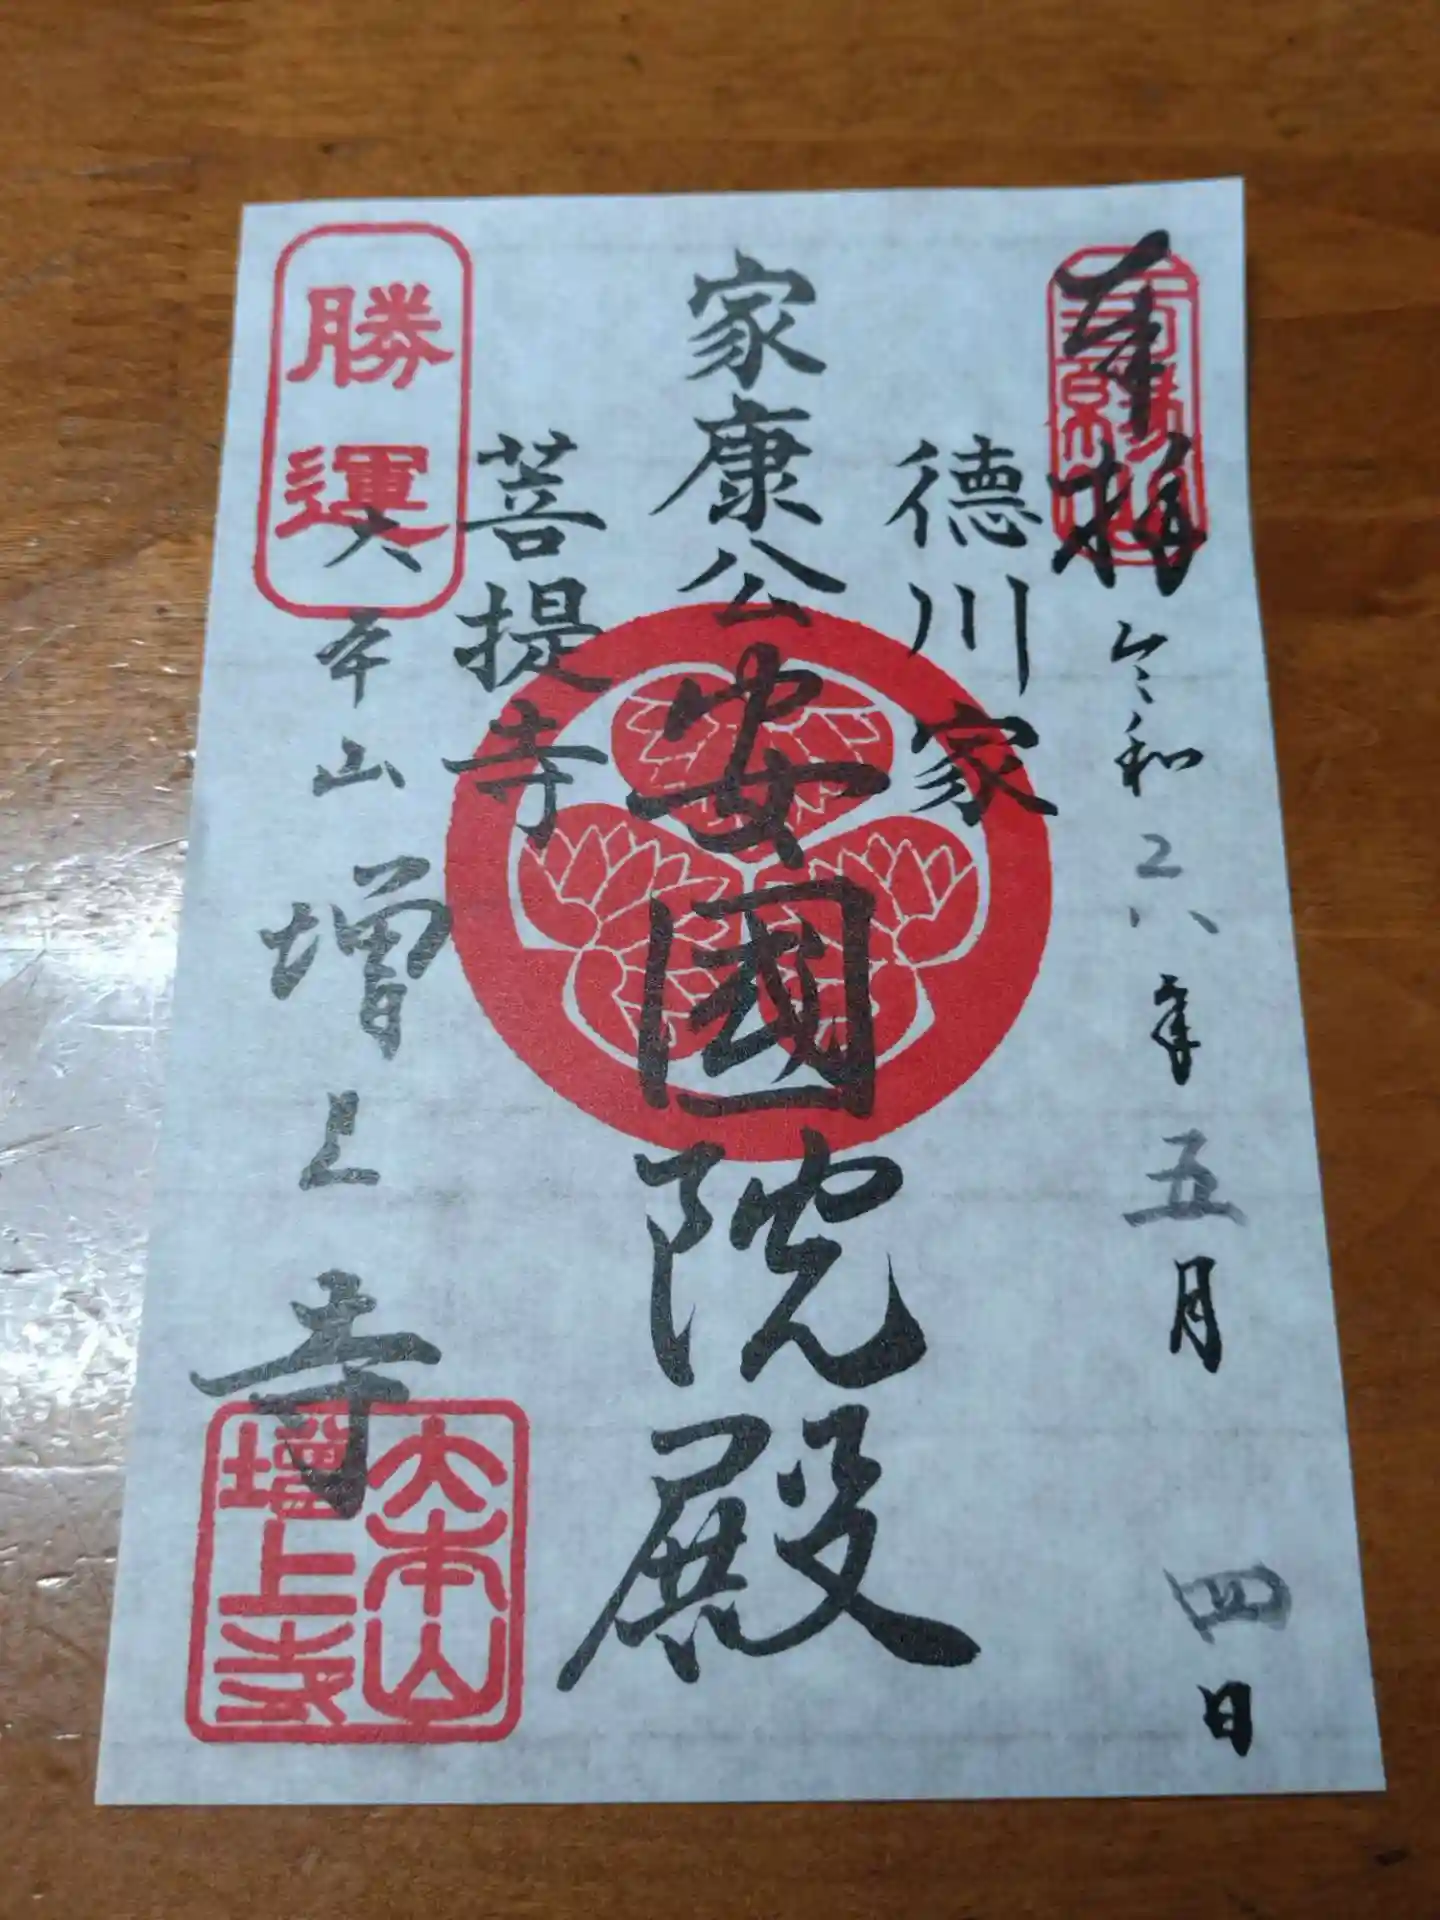 奉拝
令和六年五月四日
徳川家
家康公
安國院殿
菩提寺
勝運
大本山
増上寺
大本山
増上寺